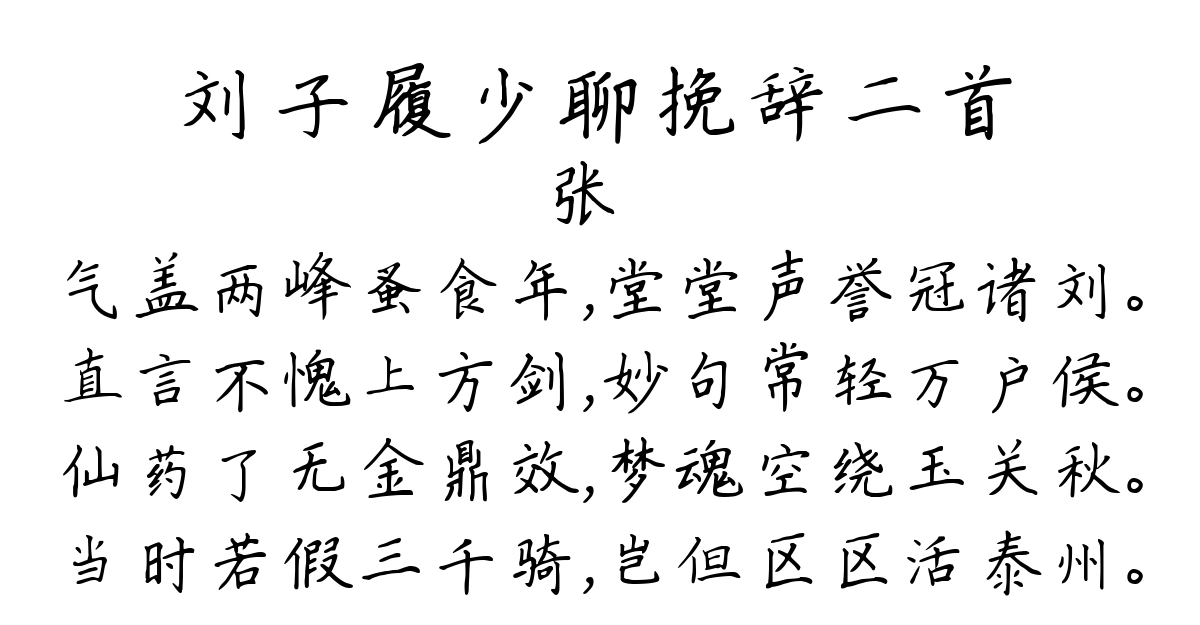 刘子履少聊挽辞二首
张
气盖两峰蚤食年,堂堂声誉冠诸刘。
直言不愧上方剑,妙句常轻万户侯。
仙药了无金鼎效,梦魂空绕玉关秋。
当时若假三千骑,岂但区区活泰州。